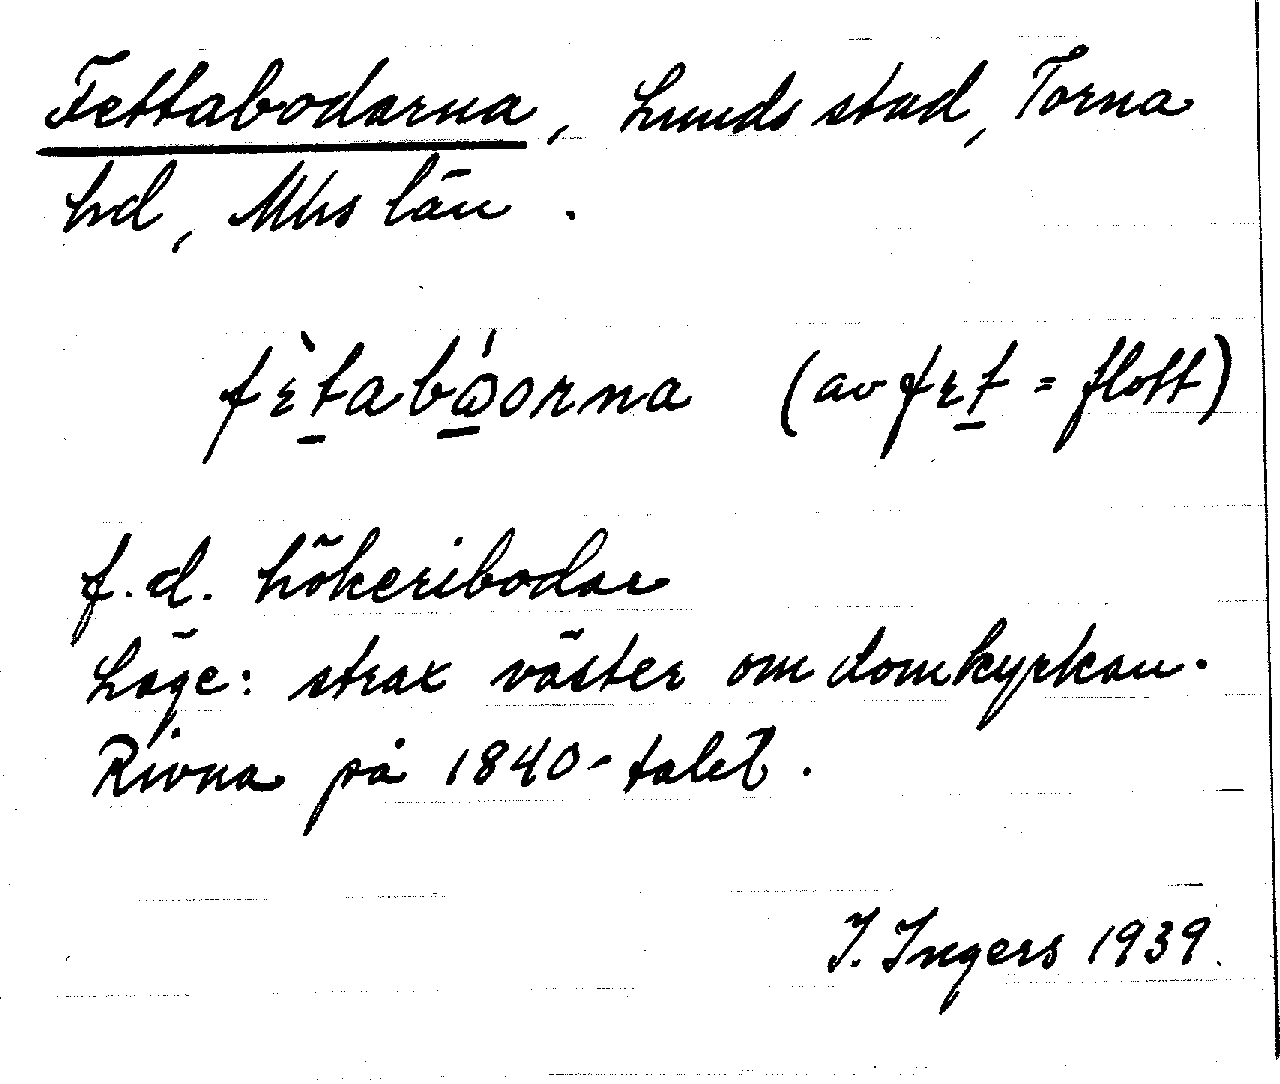 Fettabodarna, Lunds stad, Torna
hd, Mhs län.
fɛ̀t̲abώ̲orna (av fɛt̲ = flott)
f.d. hökeribodar
Läge: strax väster om domkyrkan.
Rivna på 1840-talet.
I. Ingers 1939.